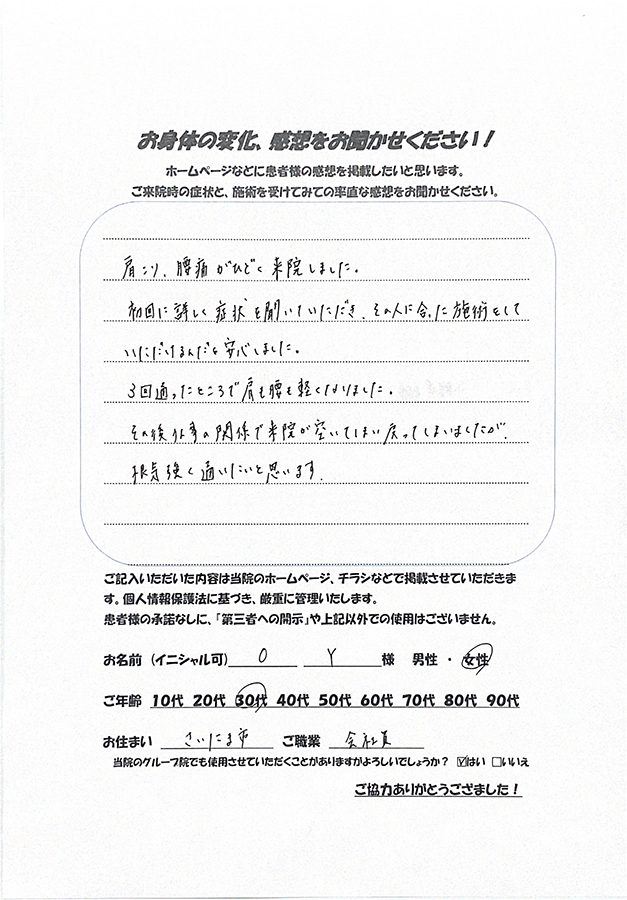 お身体の変化、感想をお聞かせください！
ホームページなどに患者様の感想を掲載したいと思います。
ご来院時の症状と、施術を受けてみての率直な感想をお聞かせください。
肩こり、腰痛がひどく来院しました。
初回に詳しく症状を聞いていただき、その人に合った施術をして
いただけるんだと安心しました。
3回通ったところで肩も腰も軽くなりました。
その後仕事の関係で来院が空いてしまい戻ってしまいましたが、
根気強く通いたいと思います。
ご記入いただいた内容は当院のホームページ、チラシなどで掲載させていただきま
す。個人情報保護法に基づき、厳重に管理いたします。
患者様の承諾なしに、「第三者への開示」や上記以外での使用はございません。
お名前（イニシャル可） O Y 様 男性・女性
ご年齢 10代 20代 30代 40代 50代 60代 70代 80代 90代
お住まい さいたま市 ご職業 会社員
当院のグループ院でも使用させていただくことがありますがよろしいでしょうか？ ☑はい □いいえ
ご協力ありがとうござました！